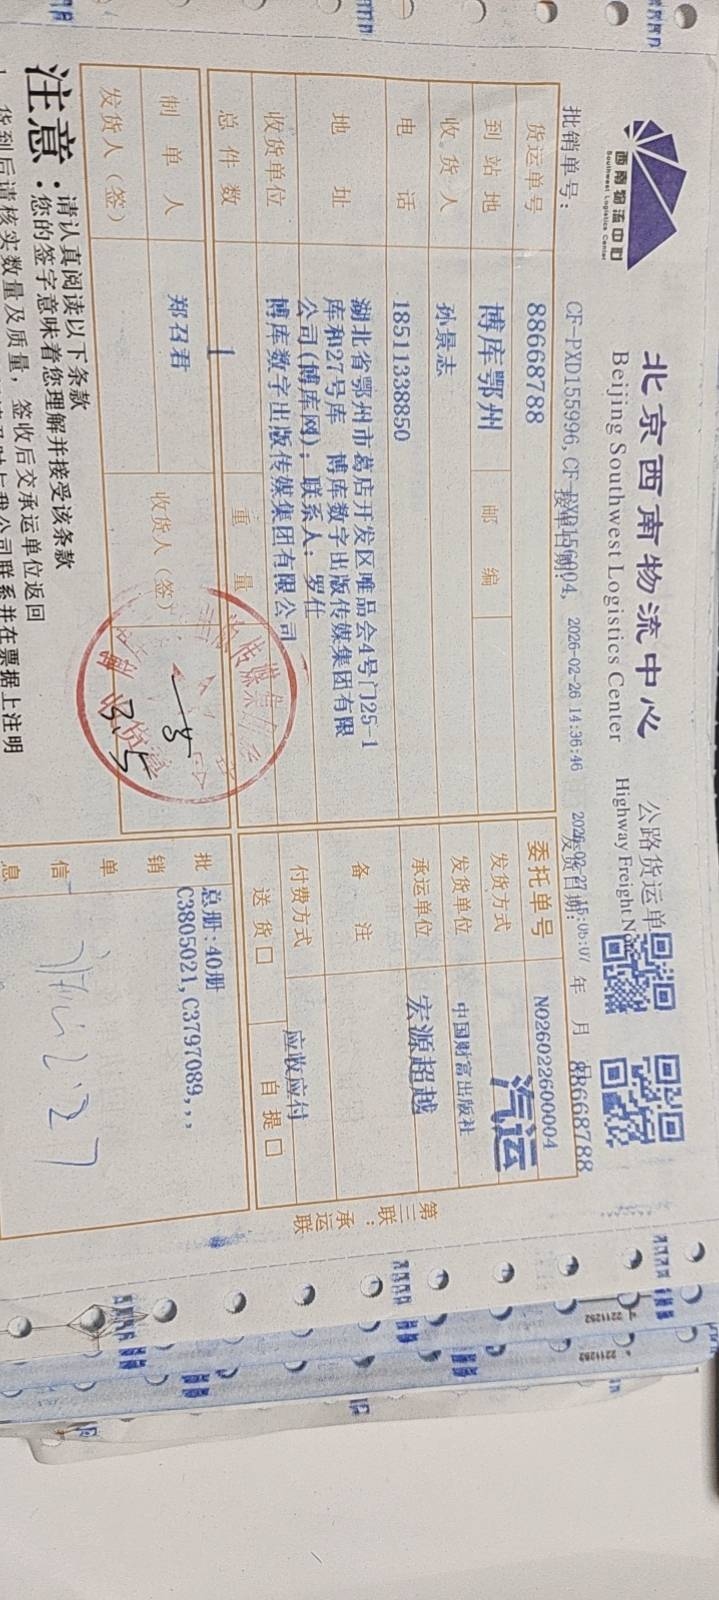 西南物流中心
Southwest Logistics Center
北京西南物流中心
Beijing Southwest Logistics Center
公路货运单
Highway Freight
批销单号：
CF-PXD155996,CF-PXD156004,
接单日期：
2026-02-26 14:36:46
发货日期：
2026-02-27 15:05:07
年 月
88668788
货运单号 88668788
委托单号 N026022600004
到站地 博库鄂州 邮编
发货方式 汽运
收货人 孙景志
发货单位 中国财富出版社
电话 18511338850
承运单位 宏源超越
地址 湖北省鄂州市葛店开发区唯品会4号门25-1
库和27号库 博库数字出版传媒集团有限
公司(博库网)；联系人：罗仕
备注
收货单位 博库数字出版传媒集团有限公司
付费方式 应收应付
总件数 1 重量
送货□ 自提□
制单人 郑召君 收货人（签）
发货人（签）
批销单信息
总册：40册
C3805021,C3797089,,,
2.27
3.5
第三联：承运联
注意：
请认真阅读以下条款
您的签字意味着您理解并接受该条款
货到后请核实数量及质量，签收后交承运单位返回